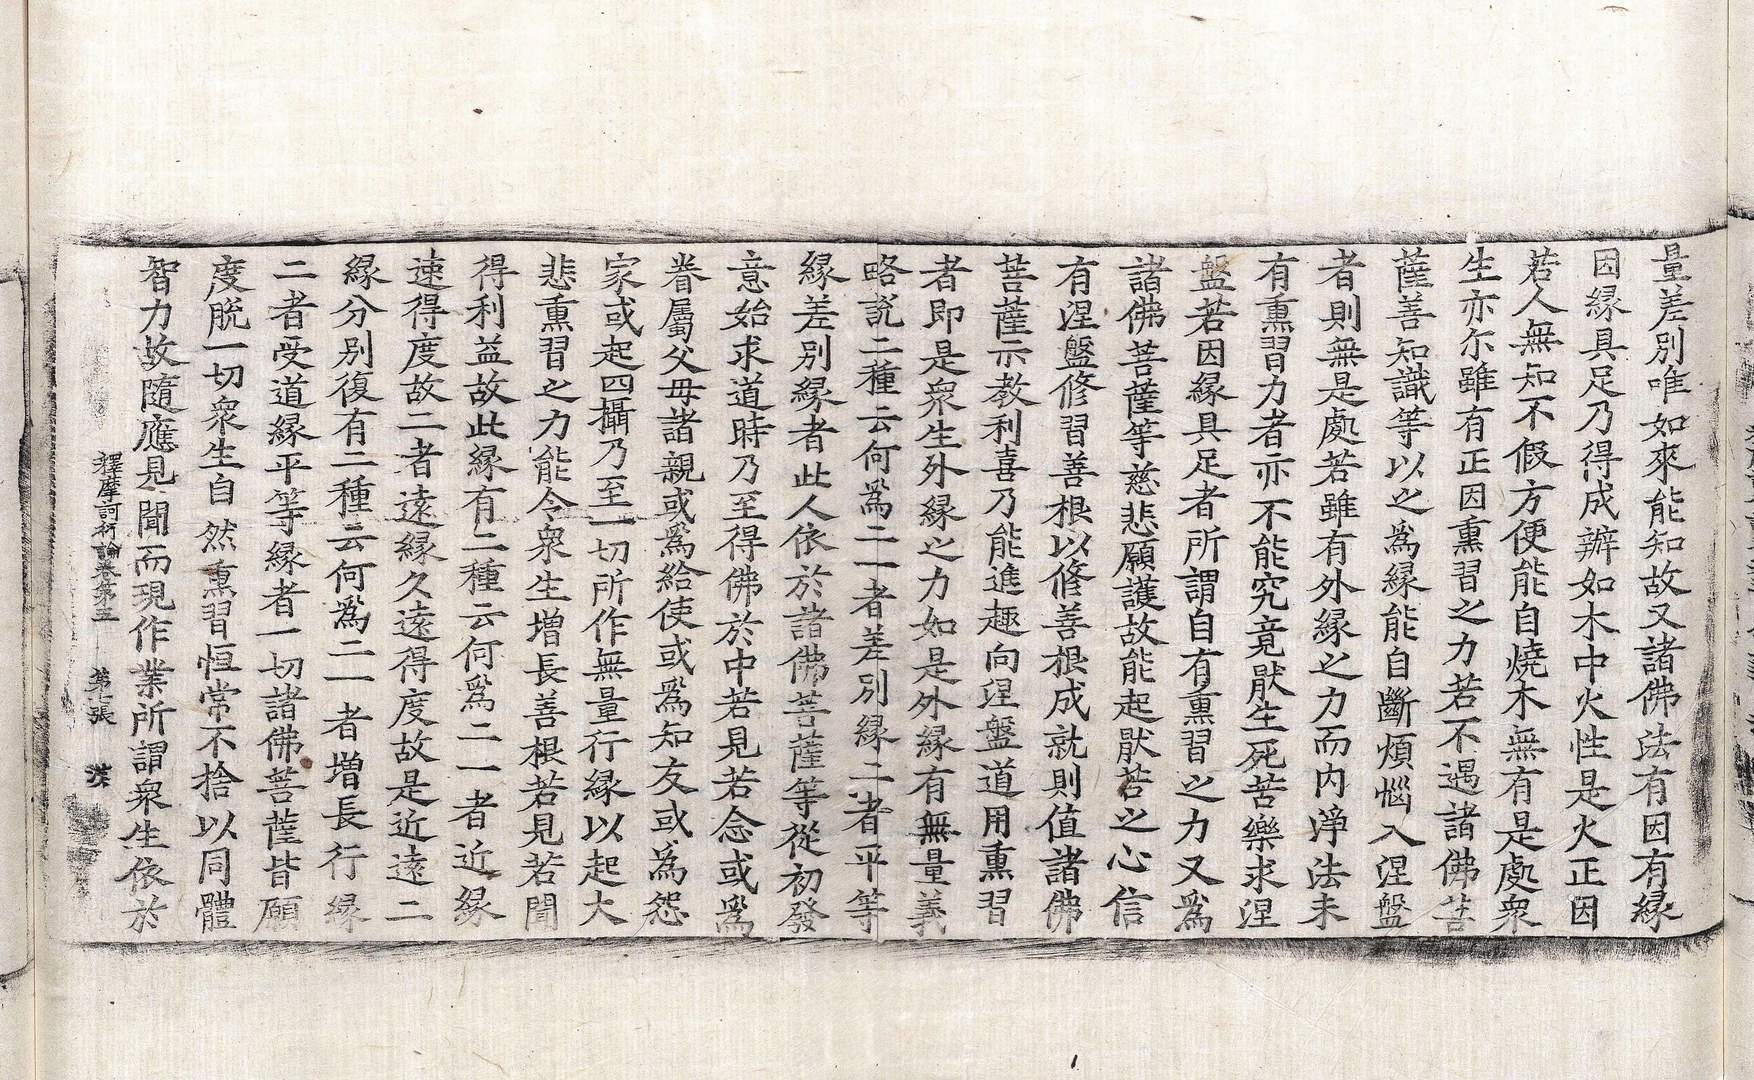 量差別唯如來能知故又諸佛法有因有緣
因緣具足乃得成辦如木中火性是火正因
若人無知不假方便能自燒木無有是處衆
生亦尒雖有正因熏習之力若不遇諸佛菩
薩善知識等以之爲緣能自斷煩惱入涅盤
者則無是處若雖有外緣之力而内淨法未
有熏習力者亦不能究竟猒生死苦樂求涅
盤若因緣具足者所謂自有熏習之力又爲
諸佛菩薩等慈悲願護故能起猒苦之心信
有涅盤修習善根以修善根成就則值諸佛
菩薩示教利喜乃能進趣向涅盤道用熏習
者即是衆生外緣之力如是外緣有無量義
略説二種云何爲二一者差別緣二者平等
緣差別緣者此人依於諸佛菩薩等從初發
意始求道時乃至得佛於中若見若念或爲
眷屬父母諸親或爲給使或爲知友或爲怨
家或起四攝乃至一切所作無量行緣以起大
悲熏習之力能令衆生增長善根若見若聞
得利益故此緣有二種云何爲二一者近緣
速得度故二者遠緣久遠得度故是近遠二
緣分別復有二種云何爲二一者增長行緣
二者受道緣平等緣者一切諸佛菩薩皆願
度脱一切衆生自然熏習恒常不捨以同體
智力故隨應見聞而現作業所謂衆生依於
釋摩訶衍論卷第五 第 張